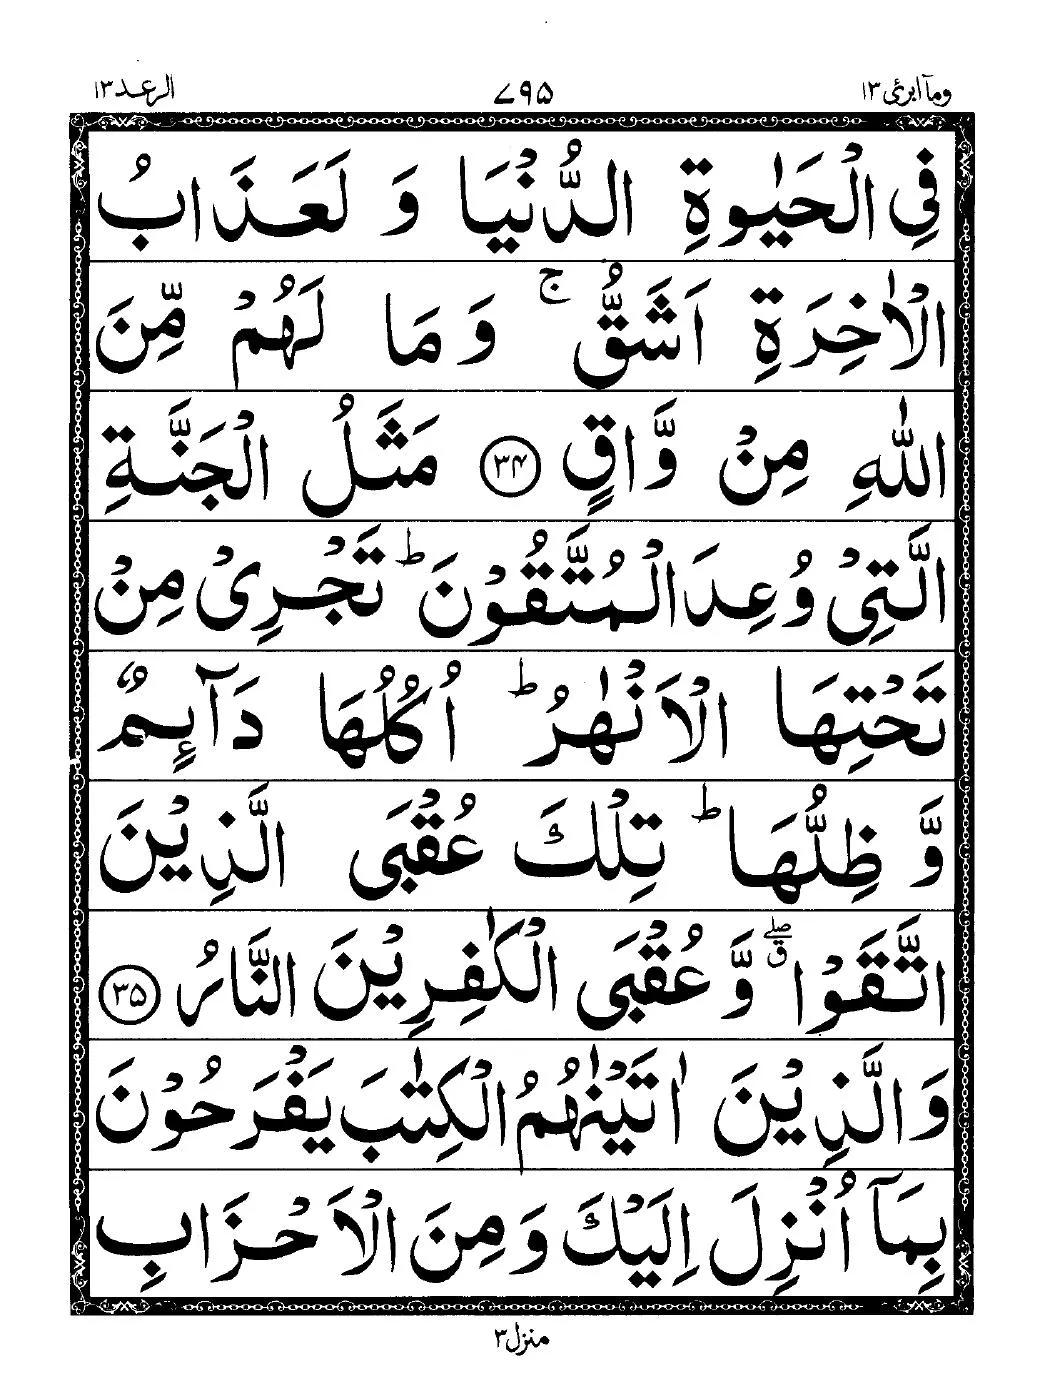 ومآ ابرئ ١٣ ٧٩۵ الرعد ١٣
فِي الْحَيٰوةِ الدُّنْيَا وَ لَعَذَابُ
الْاٰخِرَةِ اَشَقُّ ۚ وَ مَا لَهُمْ مِّنَ
اللّٰهِ مِنْ وَّاقٍ ﴿۳۴﴾ مَثَلُ الْجَنَّةِ
الَّتِيْ وُعِدَ الْمُتَّقُوْنَ ؕ تَجْرِيْ مِنْ
تَحْتِهَا الْاَنْهٰرُ ؕ اُكُلُهَا دَآىِٕمٌ
وَّ ظِلُّهَا ؕ تِلْكَ عُقْبَى الَّذِيْنَ
اتَّقَوْا ۖۗ وَّ عُقْبَى الْكٰفِرِيْنَ النَّارُ ﴿۳۵﴾
وَ الَّذِيْنَ اٰتَيْنٰهُمُ الْكِتٰبَ يَفْرَحُوْنَ
بِمَاۤ اُنْزِلَ اِلَيْكَ وَ مِنَ الْاَحْزَابِ
منزل ٣